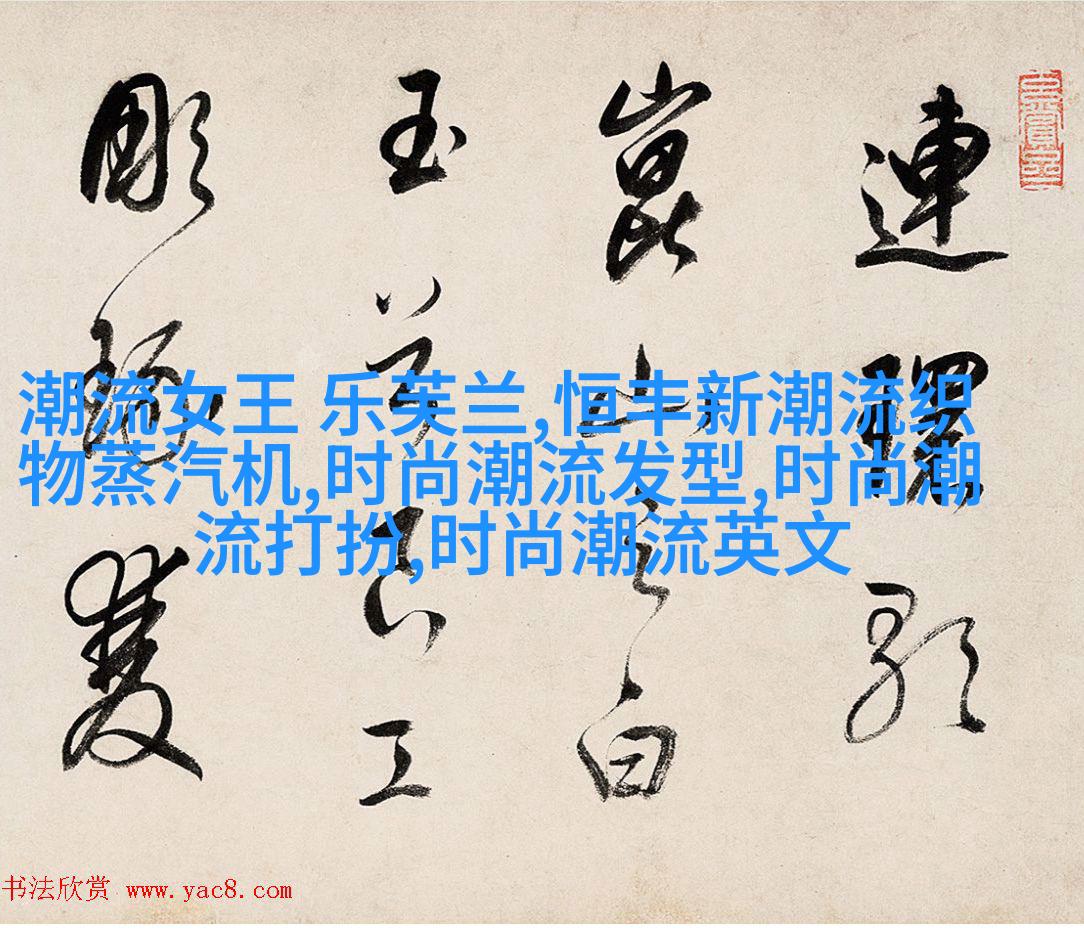 連環歌
崑山之白
玉兮良工
彫琢雙
潮流女王 乐芙兰,恒丰新潮流织
物蒸汽机,时尚潮流发型,时尚潮
流打扮,时尚潮流英文
书法欣赏 www.yac8.com